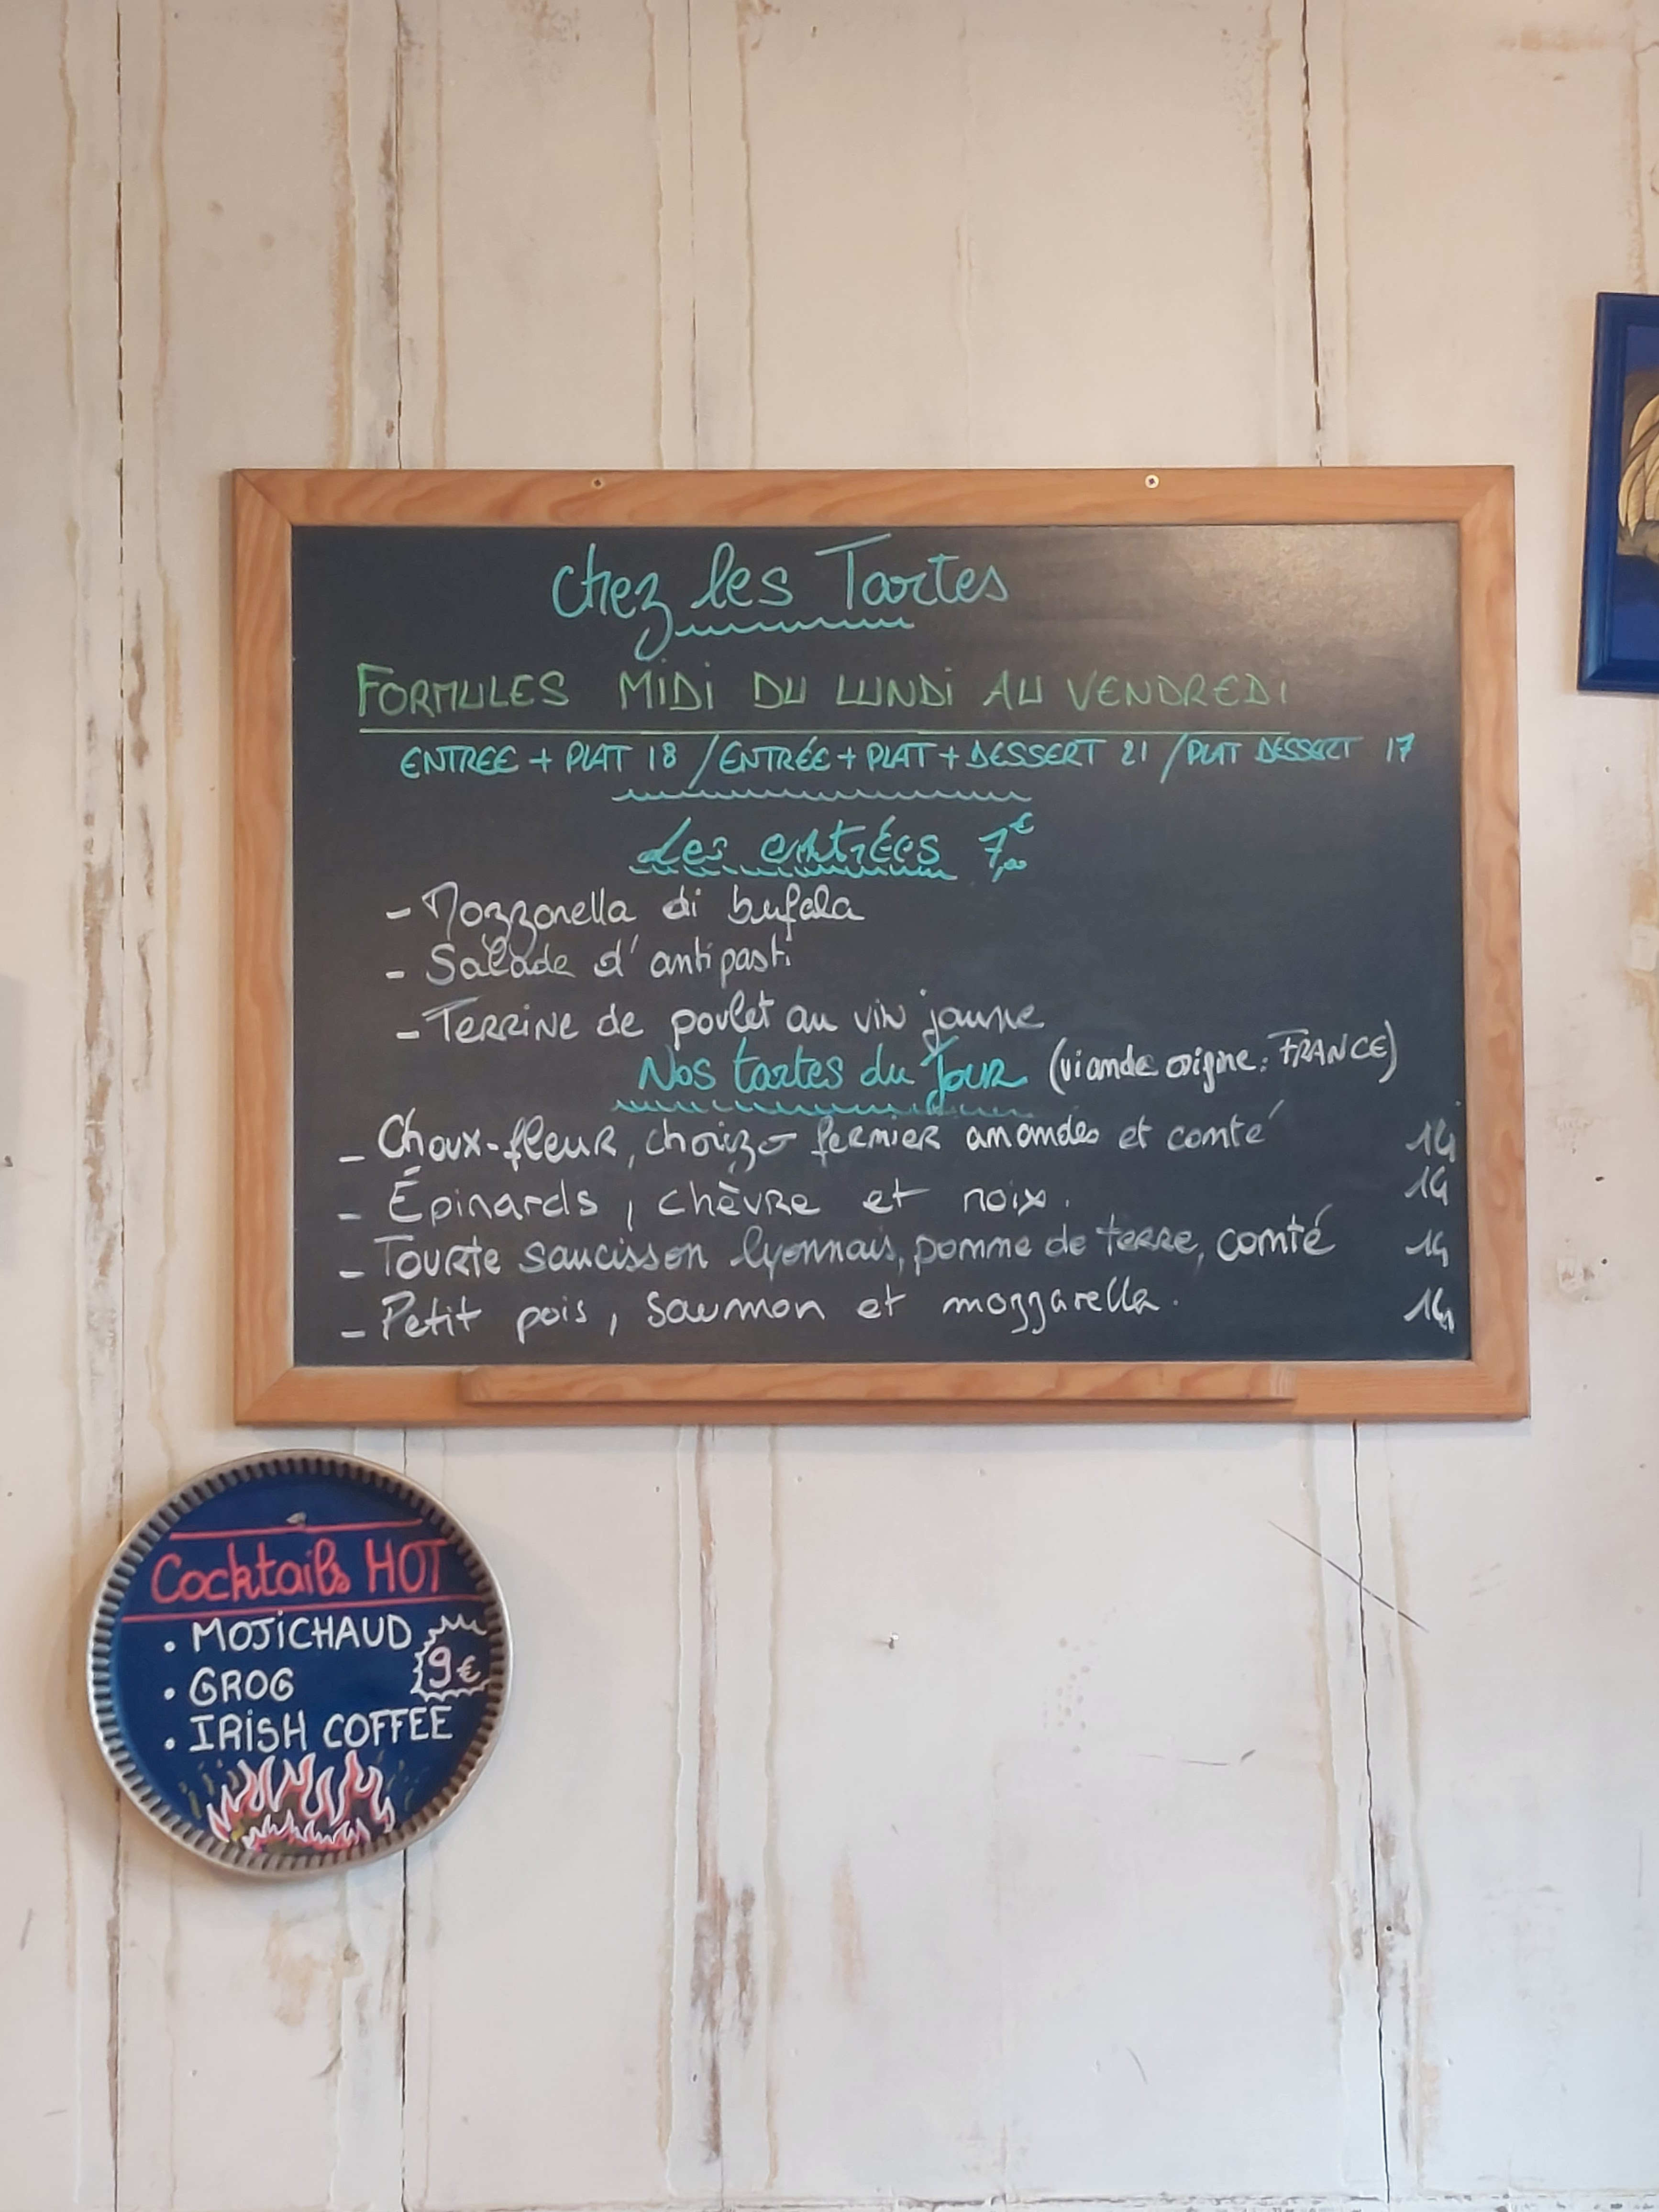 Chez les Tartes
FORMULES MIDI DU LUNDI AU VENDREDI
ENTREE + PLAT 18 / ENTRÉE + PLAT + DESSERT 21 / PLAT DESSERT 17
Les entrées 7,00€
- Mozzarella di bufala
- Salade d'antipasti
- Terrine de poulet au vin jaune
Nos tartes du jour (viande origine : FRANCE)
- Choux-fleur, chorizo fermier amandes et comté 14
- Épinards, chèvre et noix. 14
- Tourte saucisson lyonnais, pomme de terre, comté 14
- Petit pois, saumon et mozzarella. 14
Cocktails HOT
• MOJICHAUD
9€
• GROG
• IRISH COFFEE